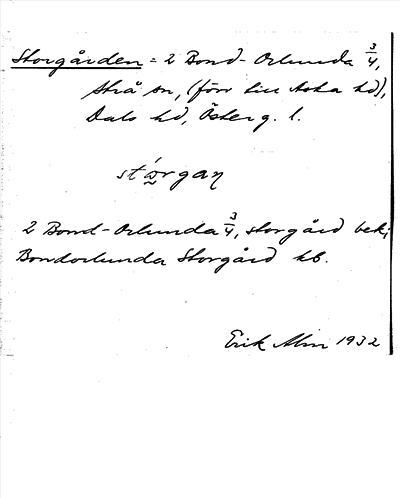 Storgården = 2 Bond-Orlunda 3/4,
Strå sn, (förr till Aska hd),
Dals hd, Österg. l.
stårgan
2 Bond-Orlunda 3/4, storgård bek;
Bondorlunda Storgård kb.
Erik Alm 1932